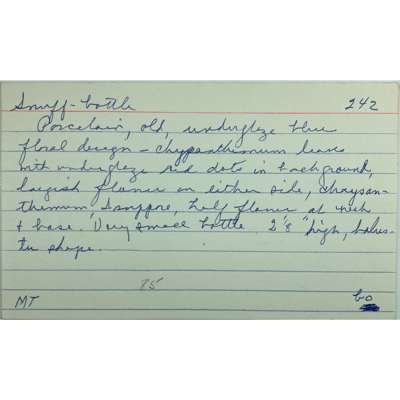 Snuff-bottle 242
Porcelain, old, underglaze blue
floral design - chrysanthimum leaves
with underglaze red dots in background,
largish flower on either side, chrysan-
themum, I suppose, half flower at neck
& base. Very small bottle. 2⅛" high, balus-
ter shape.
85
MT 60